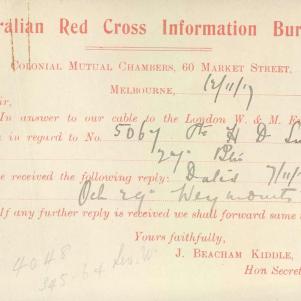 ralian Red Cross Information Bur
Colonial Mutual Chambers, 60 Market Street,
Melbourne, 12/11/17
ir,
In answer to our cable to the London W. & M. F
in regard to No. 5067 Pte H D
29 Btn
e received the following reply: Dated 7/11/
Oct 29 Weymouth
If any further reply is received we shall forward same
Yours faithfully,
J. Beacham Kiddle,
Hon Secret
4048
345-64